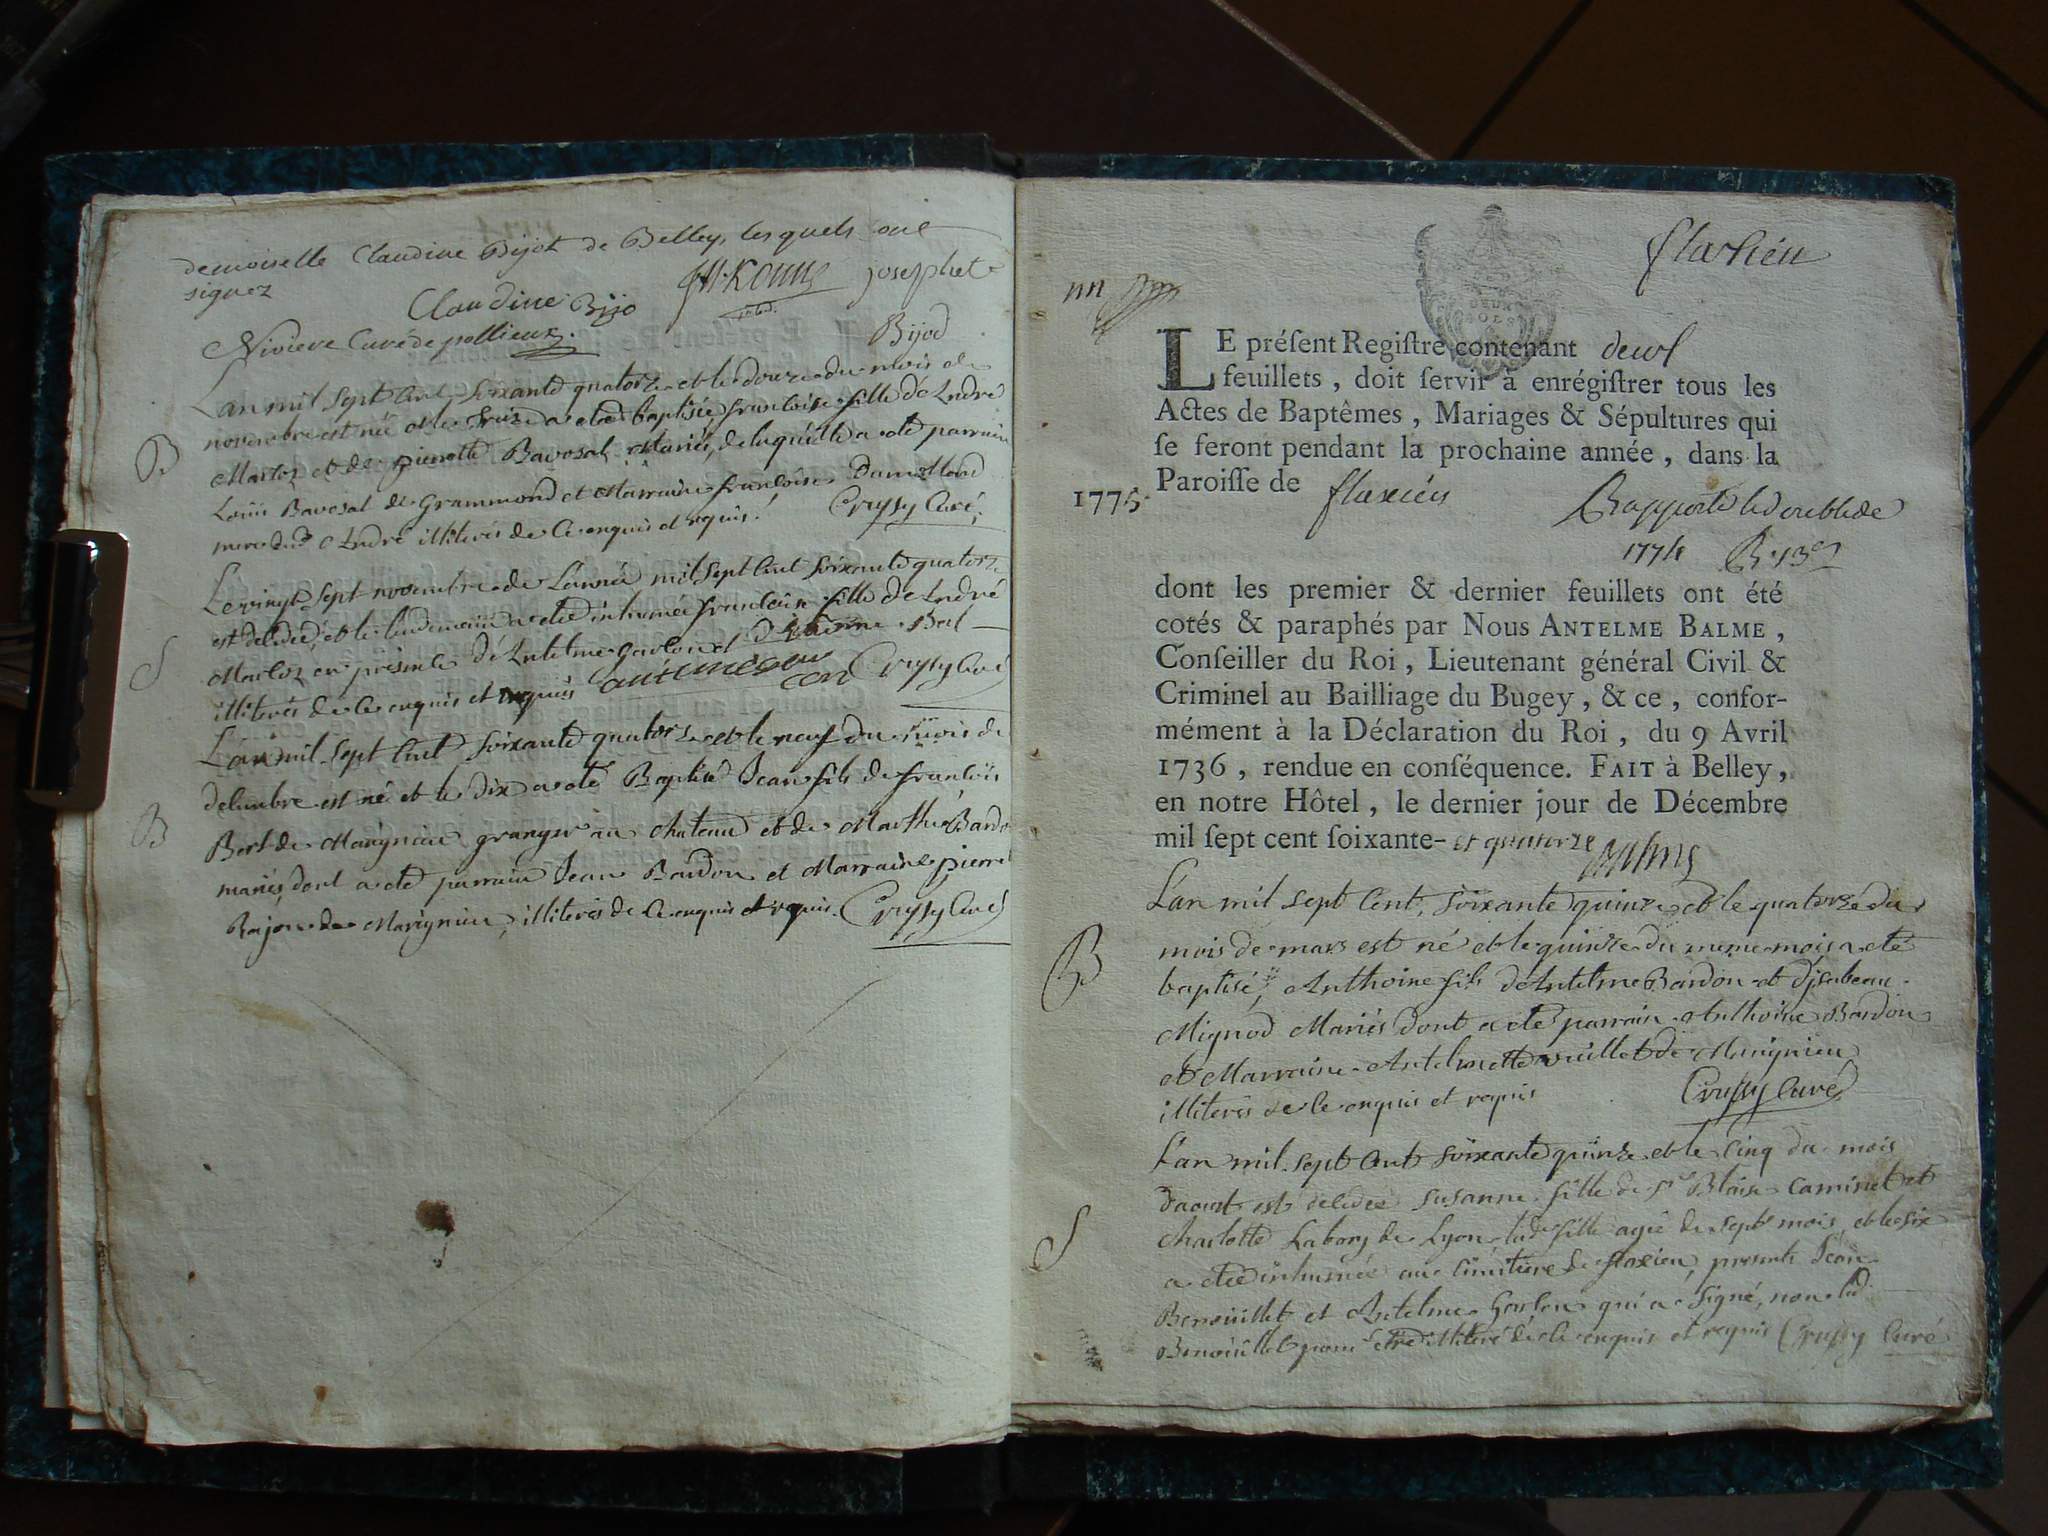 demoiselle Claudine Bijot de Belley, les quels ont
signez
Claudine Bijo
josephete
Bijod
Niviere Curé de pollieux.
L'an mil sept Cent soixante quatorze et le douze du mois de
novembre est née et le treize a eté baptisée francoise fille de André
B
Martoz et de pierrette Bavosal Mariés, de laquelle a eté parrain
Louis Bavosal de Grammond et Marraine francoise
mere dud André illiterés de Ce enquis et requis. Crussy Curé.
Le vingt sept novembre de L'année mil sept Cent soixante quatorze
est decedée, et le lendemain a eté inhumée francoise fille de André
S
Martoz en presence de Antelme garlon et D'Etienne Bert
illiterés de Ce enquis et requis Crussy Curé
L'an mil sept Cent soixante quatorze et le neuf du mois de
decembre est né et le dix a eté Baptisé Jean fils de francois
B
Bert de Marignieu granger au chateau et de Marthe Bardon
mariés, dont a eté parrain Jean Bardon et Marraine pierrette
de Marignieu, illiterés de Ce enquis et requis. Crussy Curé
flaxieu
LE préſent Regiſtre contenant deux
feuillets, doit ſervir à enrégiſtrer tous les
Actes de Baptêmes, Mariages & Sépultures qui
ſe feront pendant la prochaine année, dans la
1775. Paroiſſe de flaxieu
Rapporté le double de
1774
dont les premier & dernier feuillets ont été
cotés & paraphés par Nous ANTELME BALME,
Conſeiller du Roi, Lieutenant général Civil &
Criminel au Bailliage du Bugey, & ce, confor-
mément à la Déclaration du Roi, du 9 Avril
1736, rendue en conſéquence. FAIT à Belley,
en notre Hôtel, le dernier jour de Décembre
mil ſept cent ſoixante- et quatorze Balme
L'an mil sept Cent, soixante quinze et le quatorze du
mois de mars est né et le quinze du meme mois a eté
B
baptisé, Anthoine fils d'Antelme Bardon et d'jsabeau
Mignod Mariés dont a eté parrain Anthoine Bardon
et Marraine Antelmette vuillet de Marignieu
illiterés de Ce enquis et requis Crussy Curé
L'an mil sept Cent soixante quinze et le Cinq du mois
d'aoust est decedée susanne fille de sr Blaise Caminet et
S
charlotte Labory de Lyon lade fille agée de sept mois, et le six
a eté inhumée au Cimitiere de flaxieu, presents Jean
Benouillet et Antelme Garlon qui a signé, non led
Benouillet pour etre illiteré de Ce enquis et requis Crussy Curé